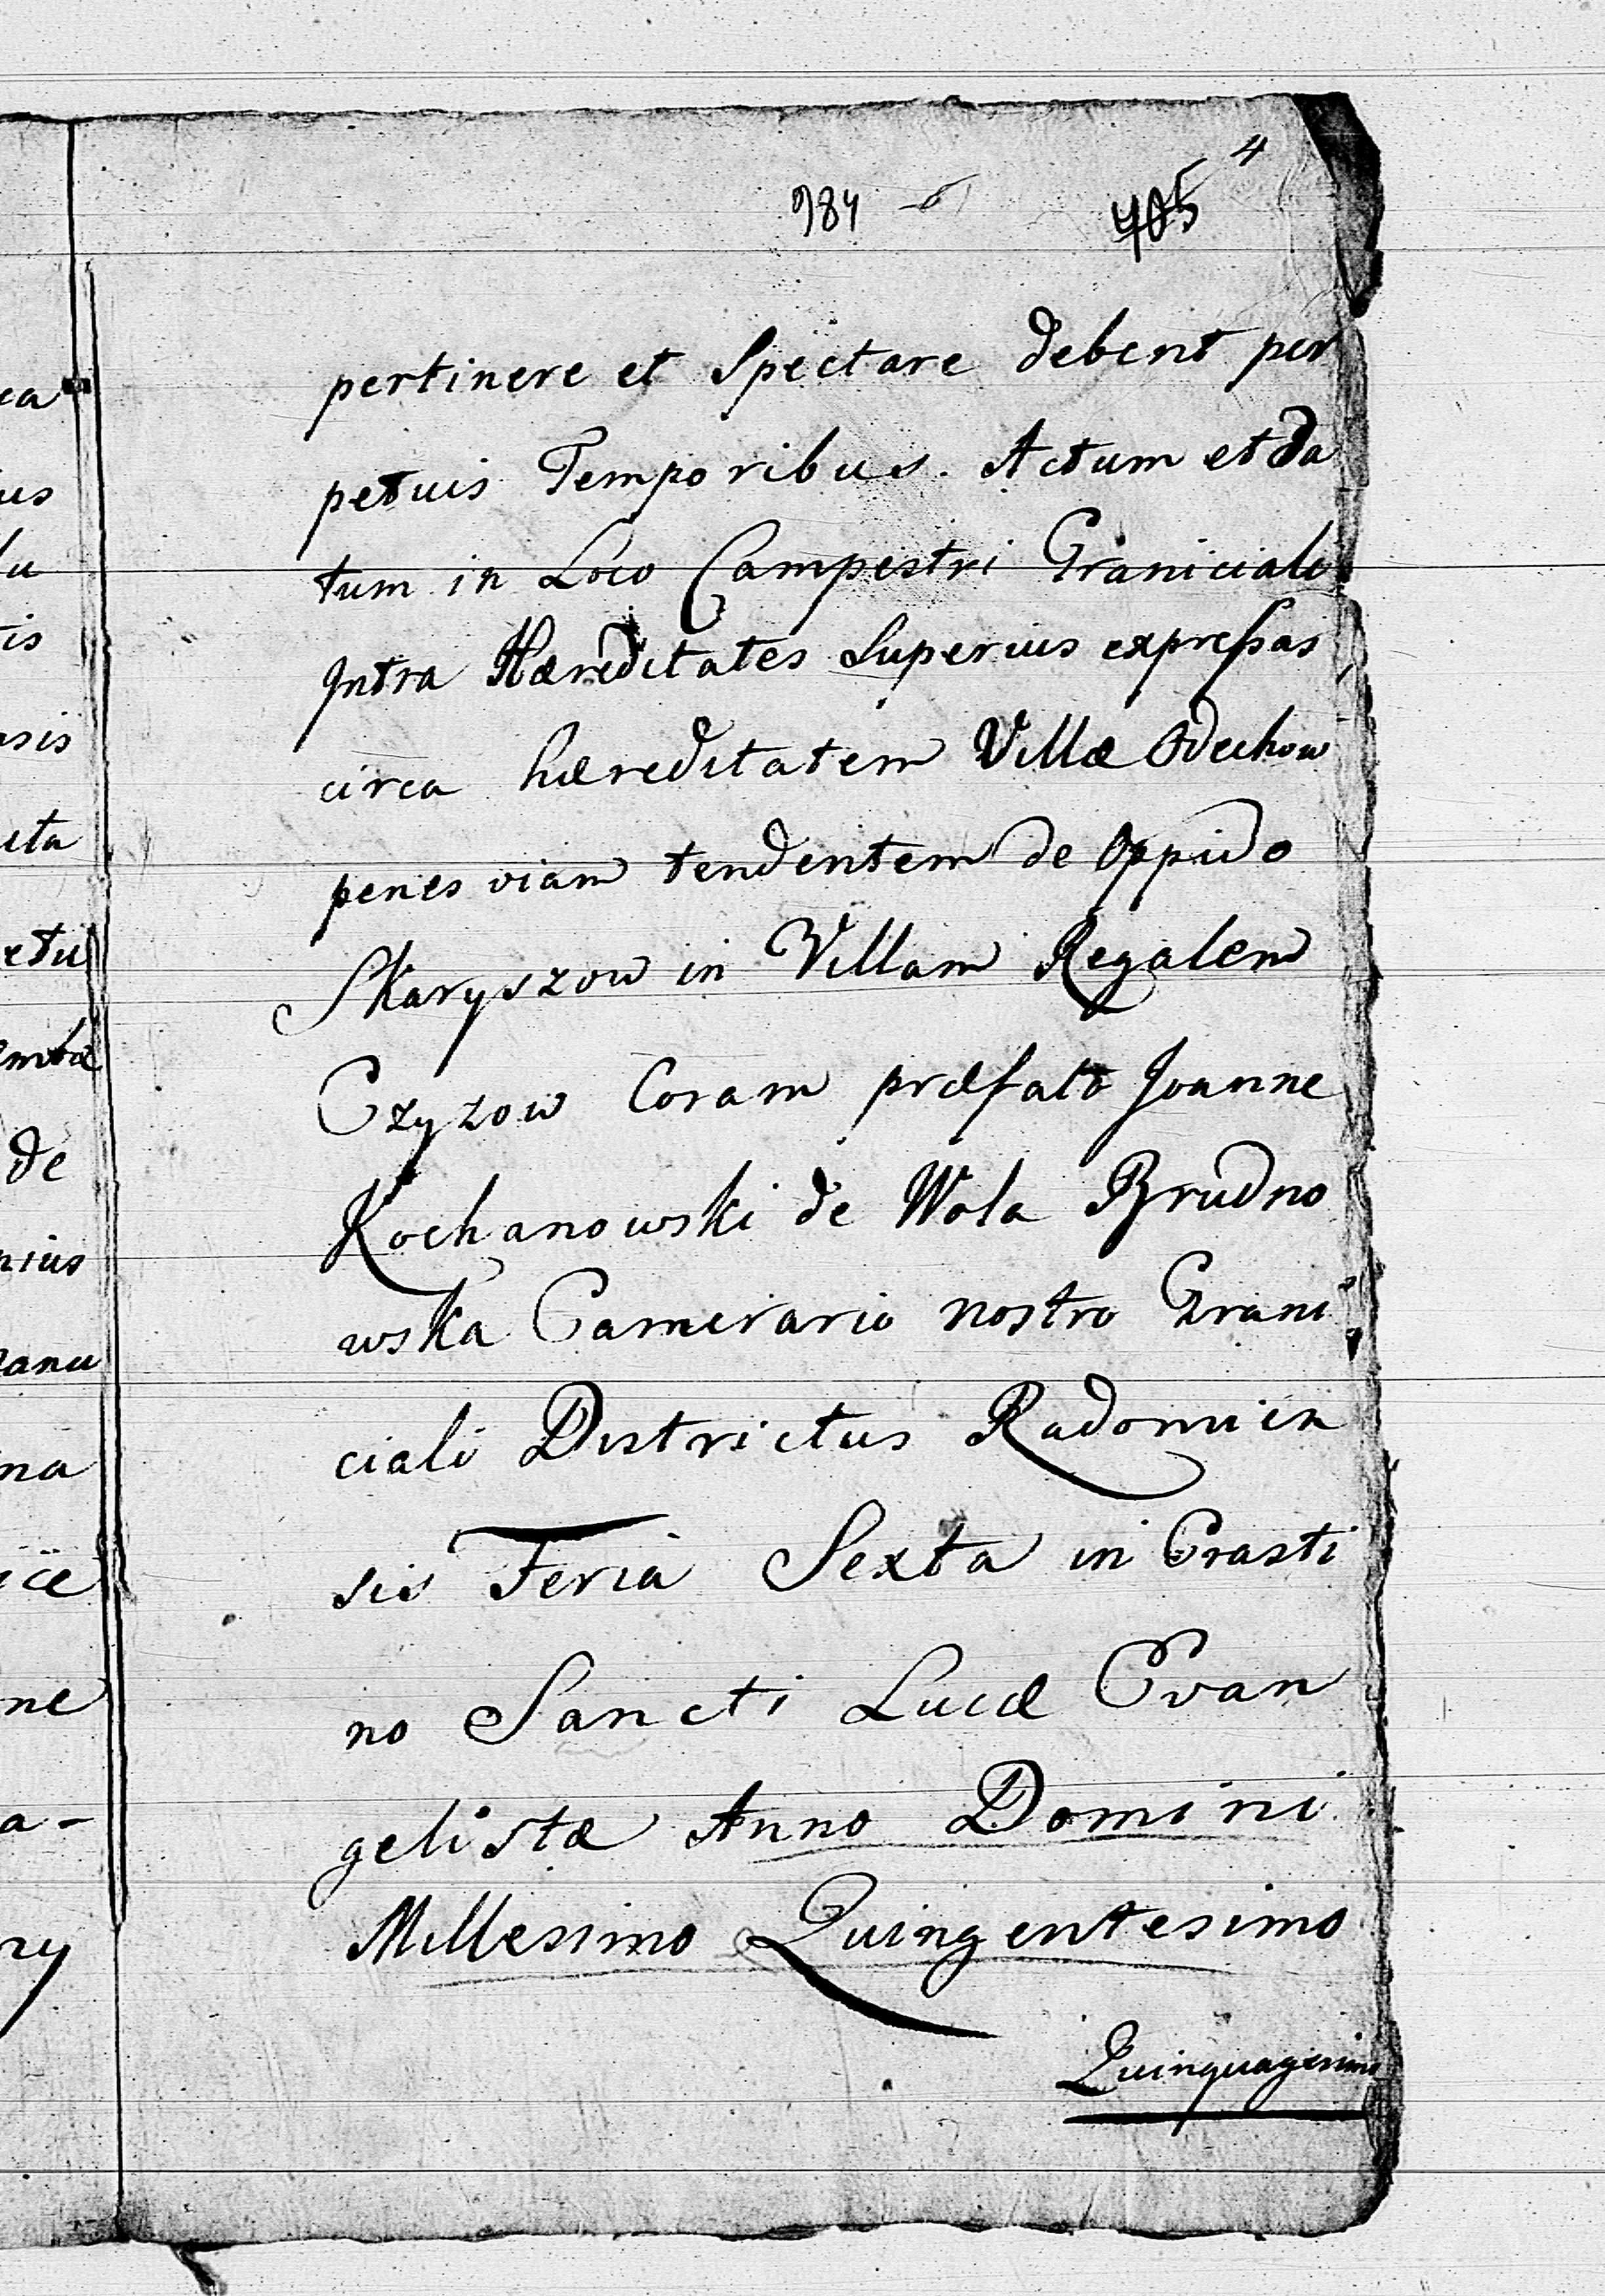 4
984
705
pertinere et Spectare debent per
petuis Temporibus. Actum et da
tum in Loco Campestri Graniciali
Intra Hæreditates Superius expreſsas
circa hæreditatem Villæ Odechow
penes viam tendentem de Oppido
Skaryszow in Villam Regalem
Czyzow Coram præfato Joanne
Kochanowski de Wola Brudno
wska Camerario nostro Grani
ciali Districtus Radomien
sis Feria Sexta in Crasti
no Sancti Lucæ Evan
gelistæ Anno Domini
Millesimo Quingentesimo
Quinquagesimo
us
tis
eta
de
nius
na
ne
a-
ry